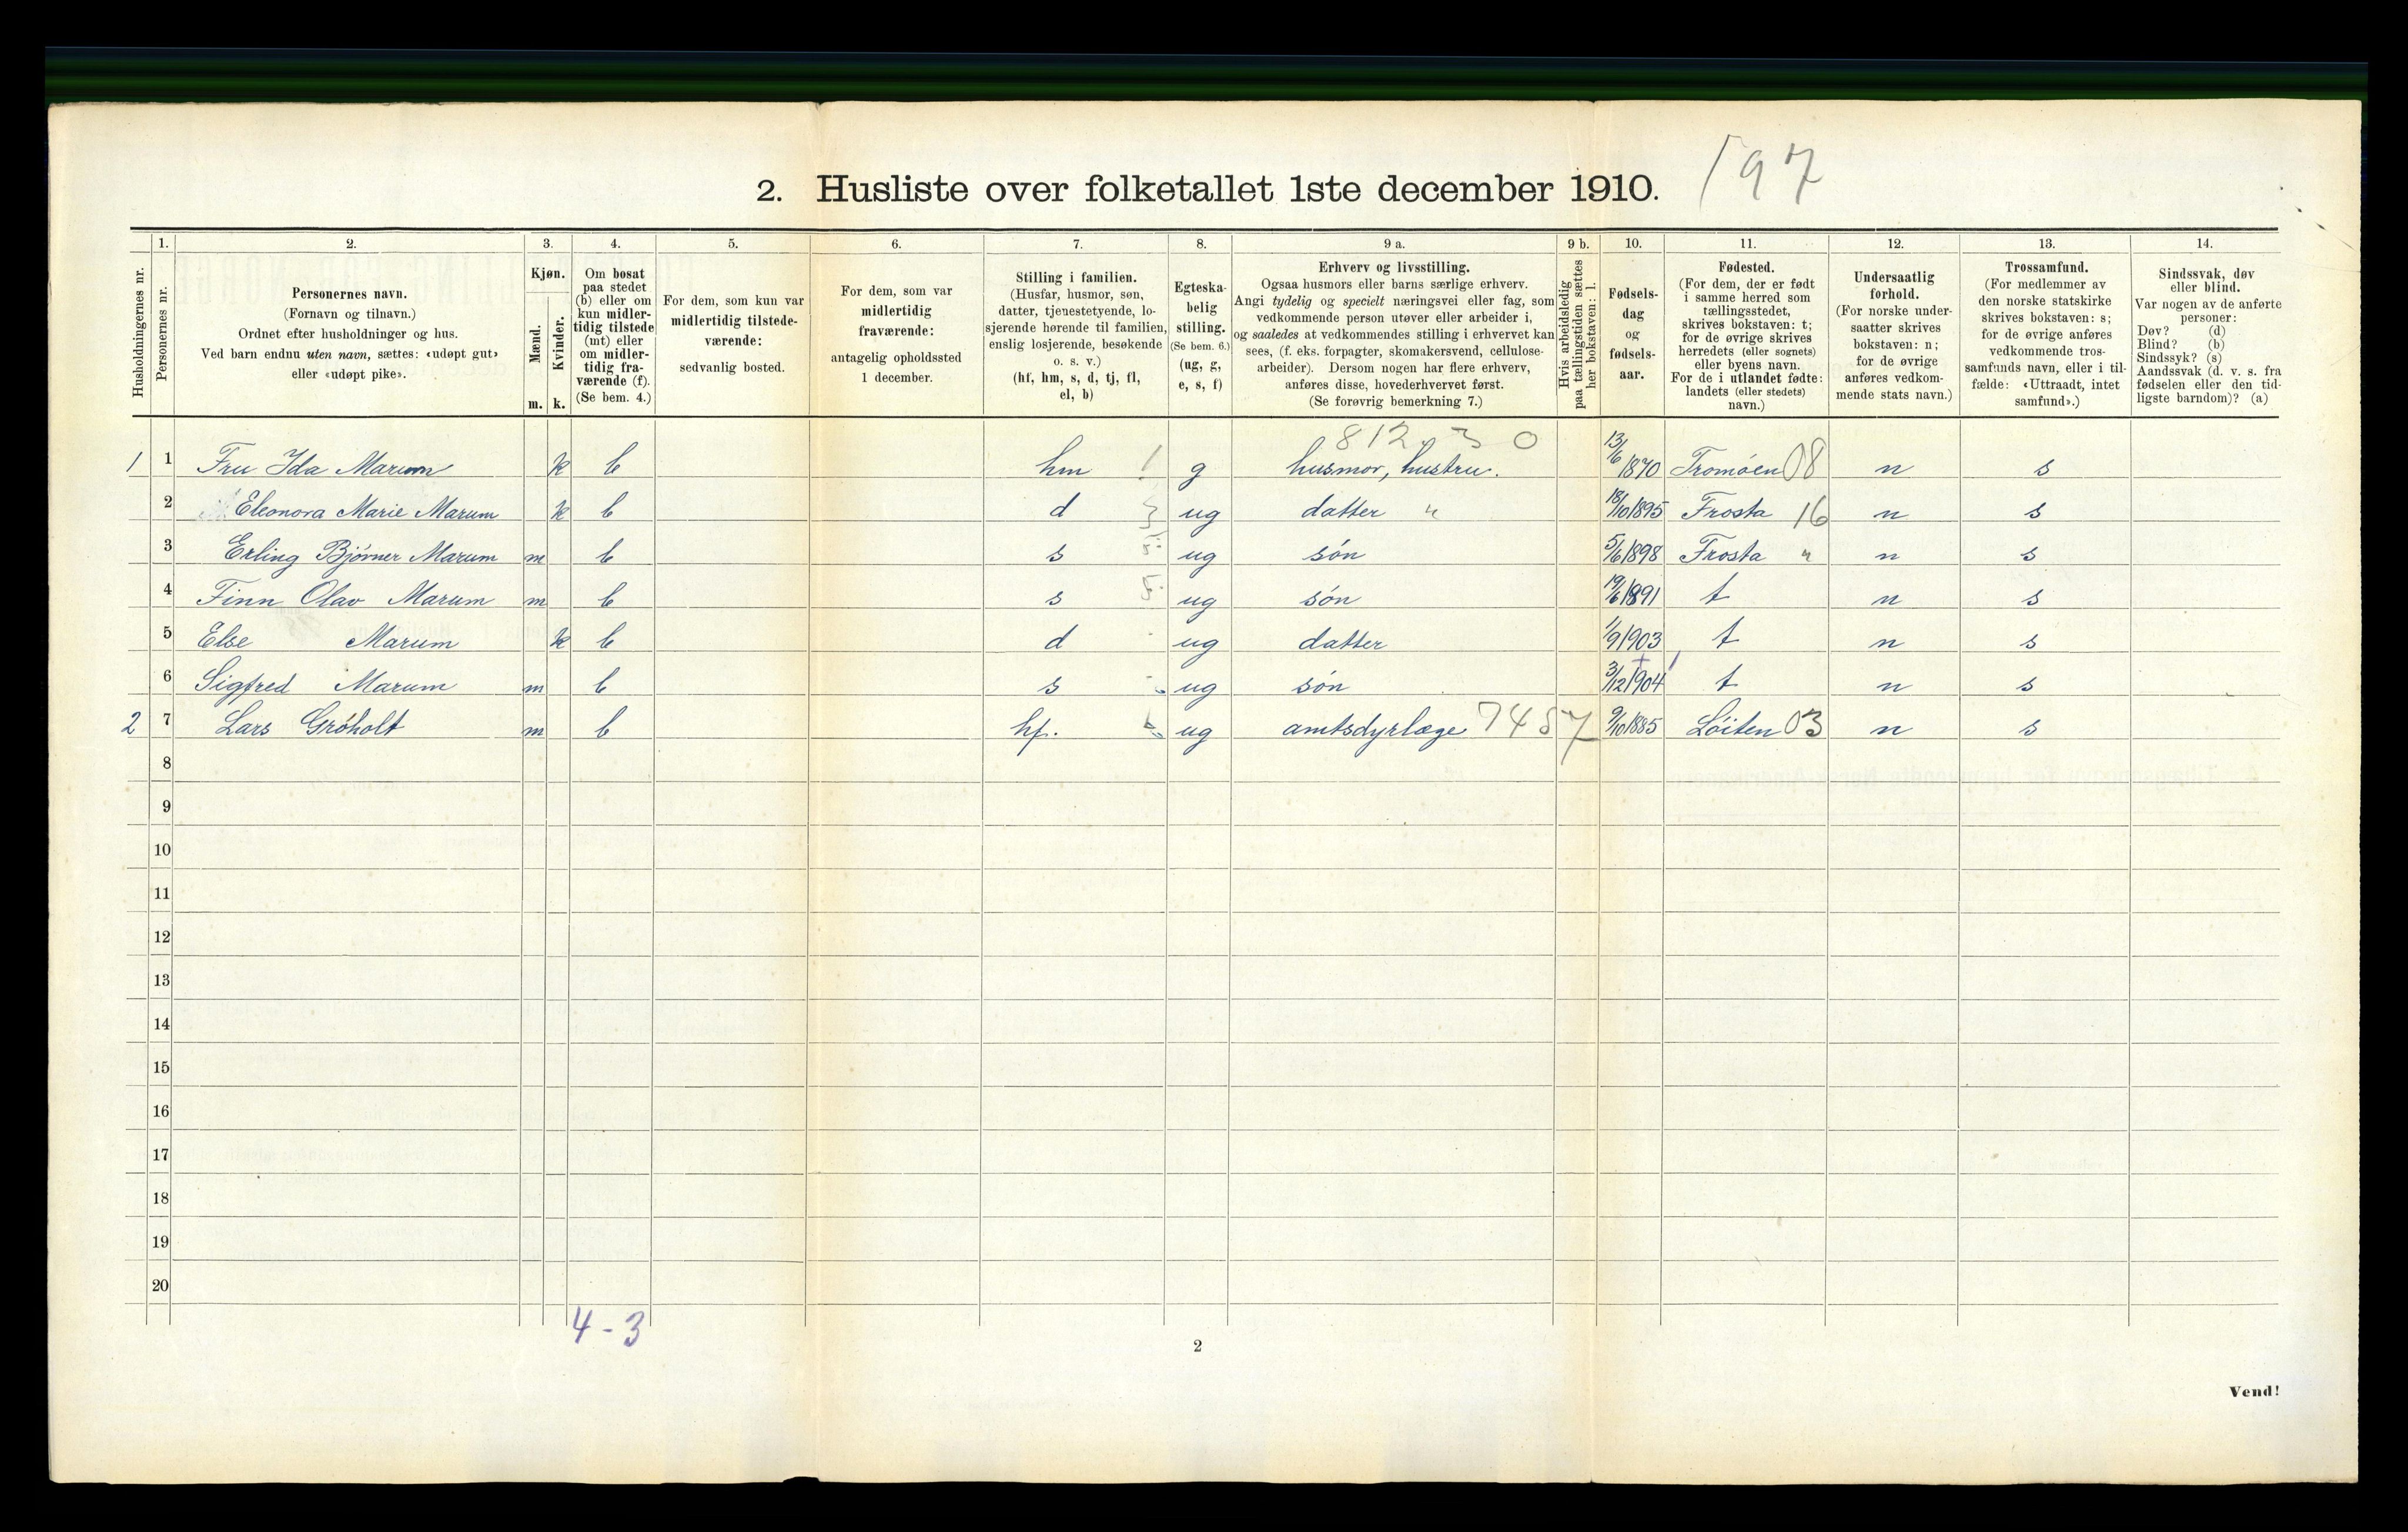 197
2. Husliste over folketallet 1ste december 1910.
Husholdningernes nr.
1.
Personernes nr.
2.
Personernes navn.
(Fornavn og tilnavn.)
Ordnet efter husholdninger og hus.
Ved barn endnu uten navn, sættes: «udøpt gut»
eller «udøpt pike».
3.
Kjøn.
Mænd.
Kvinder.
m. k.
4.
Om bosat
paa stedet
(b) eller om
kun midler-
tidig tilstede
(mt) eller
om midler-
tidig fra-
værende (f).
(Se bem. 4.)
5.
For dem, som kun var
midlertidig tilstede-
værende:
sedvanlig bosted.
6.
For dem, som var
midlertidig
fraværende:
antagelig opholdssted
1 december.
7.
Stilling i familien.
(Husfar, husmor, søn,
datter, tjenestetyende, lo-
sjerende hørende til familien,
enslig losjerende, besøkende
o. s. v.)
(hf, hm, s, d, tj, fl,
el, b)
8.
Egteska-
belig
stilling.
(Se bem. 6.)
(ug, g,
e, s, f)
9 a.
Erhverv og livsstilling.
Ogsaa husmors eller barns særlige erhverv.
Angi tydelig og specielt næringsvei eller fag, som
vedkommende person utøver eller arbeider i,
og saaledes at vedkommendes stilling i erhvervet kan
sees, (f. eks. forpagter, skomakersvend, cellulose-
arbeider). Dersom nogen har flere erhverv,
anføres disse, hovederhvervet først.
(Se forøvrig bemerkning 7.)
9 b.
Hvis arbeidsledig
paa tællingstiden sættes
her bokstaven: l.
10.
Fødsels-
dag
og
fødsels-
aar.
11.
Fødested.
(For dem, der er født
i samme herred som
tællingsstedet,
skrives bokstaven: t;
for de øvrige skrives
herredets (eller sognets)
eller byens navn.
For de i utlandet fødte:
landets (eller stedets)
navn.)
12.
Undersaatlig
forhold.
(For norske under-
saatter skrives
bokstaven: n;
for de øvrige
anføres vedkom-
mende stats navn.)
13.
Trossamfund.
(For medlemmer av
den norske statskirke
skrives bokstaven: s;
for de øvrige anføres
vedkommende tros-
samfunds navn, eller i til-
fælde: «Uttraadt, intet
samfund».)
14.
Sindssvak, døv
eller blind.
Var nogen av de anførte
personer:
Døv? (d)
Blind? (b)
Sindssyk? (s)
Aandssvak (d. v. s. fra
fødselen eller den tid-
ligste barndom)? (a)
812 30
1 1 Fru Ida Marum k b hm 1 g husmor, hustru. 13/6 1870 Tromøen 08 n s
2 Eleonora Marie Marum k b d 3 ug datter " 18/10 1895 Frosta 16 n s
3 Erling Bjørner Marum m b s 5 ug søn 5/6 1898 Frosta " n s
4 Finn Olav Marum m b s 5 ug søn 19/6 1891 t n s
5 Else Marum k b d ug datter 1/9 1903 t n s
6 Sigfred Marum m b s ug søn 3/12 1904 t n s
2 7 Lars Grøholt m b hf. ug amtsdyrlæge 7457 9/10 1885 Løiten 03 n s
8
9
10
11
12
13
14
15
16
17
18
19
20
4-3
2
Vend!